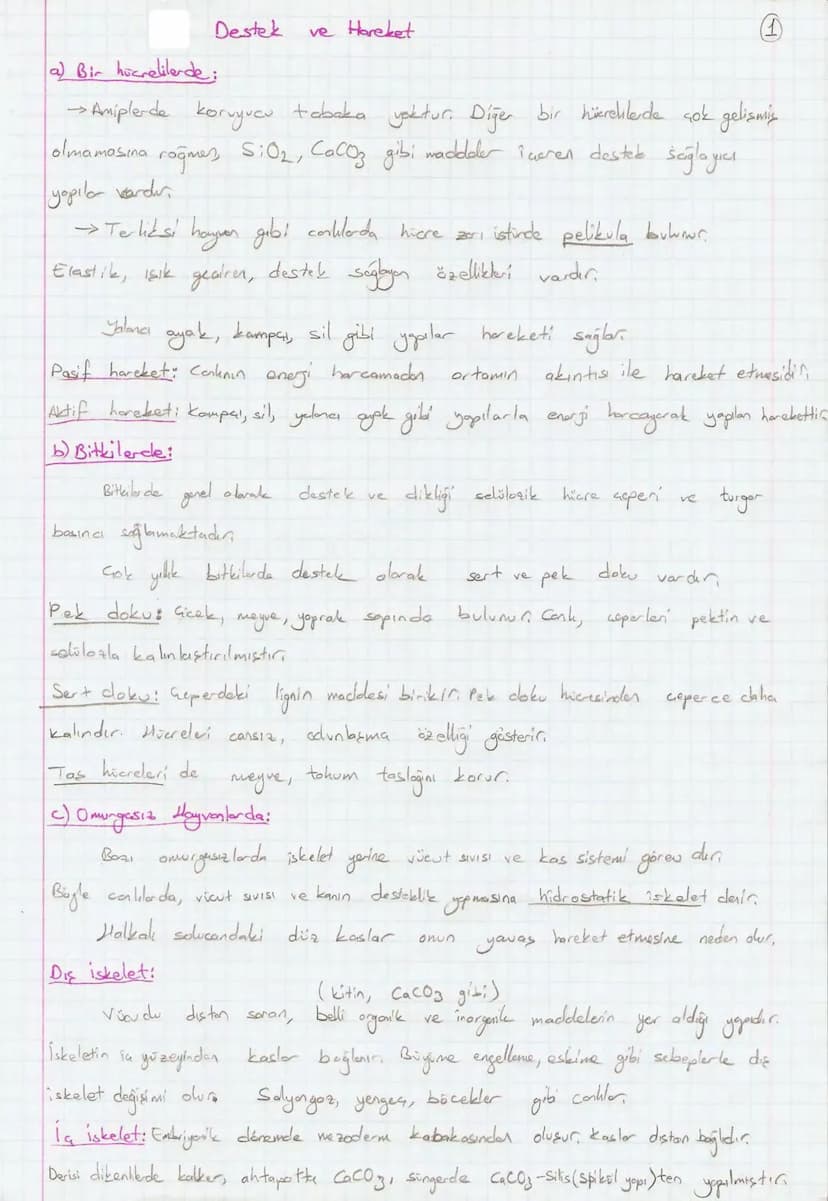 Destek ve Hareket
1
a) Bir hücrelilerde:
→ Amiplerde koruyucu tabaka yoktur. Diğer bir hücrelilerde çok gelişmiş
olmamasına rağmen, SiO2, CaCO3 gibi maddeler içeren destek sağlayıcı
yapılar vardır.
→ Terliksi hayvan gibi canlılarda hücre zarı üstünde pelikula bulunur.
Elastik, ışık geçiren, destek sağlayan özellikleri vardır.
Yalancı ayak, kampçı, sil gibi yapılar hareketi sağlar.
Pasif hareket: Canlının enerji harcamadan ortamın akıntısı ile hareket etmesidir.
Aktif hareket: Kampçı, sil, yalancı ayak gibi yapılarla enerji harcayarak yapılan harekettir.
b) Bitkilerde:
Bitkilerde genel olarak destek ve dikliği selülozik hücre çeperi ve turgor
basıncı sağlamaktadır.
Çok yıllık bitkilerde destek olarak sert ve pek doku vardır.
Pek doku: Çiçek, meyve, yaprak sapında bulunur. Canlı, çeperleri pektin ve
selülozla kalınlaştırılmıştır.
Sert doku: Çeperdeki lignin maddesi birikir. Pek doku hücresinden çeperce daha
kalındır. Hücreleri cansız, odunlaşma özelliği gösterir.
Taş hücreleri de meyve, tohum taslağını korur.
c) Omurgasız Hayvanlarda:
Bazı omurgasızlarda iskelet yerine vücut sıvısı ve kas sistemi görev alır.
Böyle canlılarda, vücut sıvısı ve kanın desteklik yapmasına hidrostatik iskelet denir.
Halkalı solucandaki düz kaslar onun yavaş hareket etmesine neden olur.
Dış iskelet:
(kitin, CaCO3 gibi)
Vücudu dıştan saran, belli organik ve inorganik maddelerin yer aldığı yapıdır.
İskeletin iç yüzeyinden kaslar bağlanır. Büyüme engelleme, eskime gibi sebeplerle dış
iskelet değişimi olur. Salyangoz, yengeç, böcekler gibi canlılar.
İç iskelet: Embriyonik dönemde mezoderm kabakasından oluşur. Kaslar dıştan bağlıdır.
Derisi dikenlilerde kalker, ahtapotta CaCO3, süngerde CaCO3-Silis(spikül yapı)ten yapılmıştır.